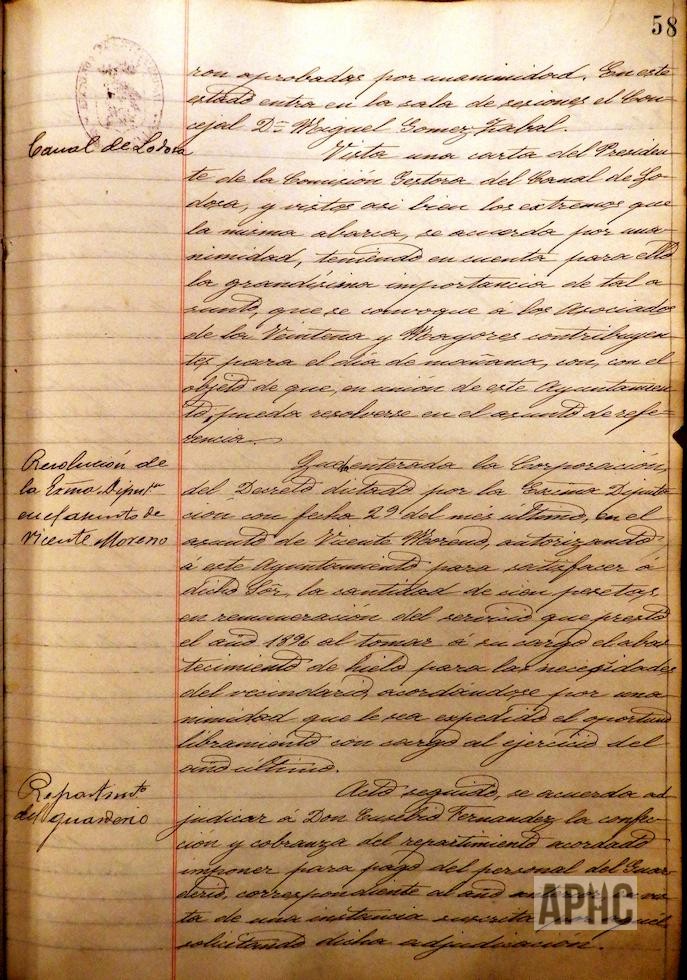 58
ron aprobadas por unanimidad. En este
estado entra en la sala de sesiones el Con-
cejal Dn Miguel Gomez Zabal.
Canal de Lodosa
Vista una carta del Presiden-
te de la Comisión Gestora del Canal de Lo-
dosa, y vistos asi bien los extremos que
la misma abarca, se acuerda por una-
nimidad, teniendo en cuenta para ello
la grandísima importancia de tal a-
sunto, que se convoque á los Asociados
de la Veintena y Mayores contribuyen-
tes para el dia de mañana, con, con el
objeto de que, en union de este Ayuntamien-
to, pueda resolverse en el asunto de refe-
rencia.
Resolución de
la Exma. Diput.ón
en el asunto de
Vicente Moreno
Queda enterada la Corporación,
del Decreto dictado por la Excma Diputa-
cion con fecha 29 del mes último, en el
asunto de Vicente Moreno, autorizando
á este Ayuntamiento para satisfacer á
dicho Sor. la cantidad de cien pesetas,
en remuneración del servicio que prestó
el año 1896 al tomar á su cargo el abas-
tecimiento de hielo para las necesidades
del vecindario, acordándose por una-
nimidad que le sea expedido el oportuno
libramiento con cargo al ejercicio del
año último.
Repartimto
del guarderio
Acto seguido, se acuerda ad-
judicar á Don Eusebio Fernandez la confec-
ción y cobranza del repartimiento acordado
imponer para pago del personal del Guar-
derio, correspondiente al año
ta de una instancia suscrita
solicitando dicha adjudicación.
APHC